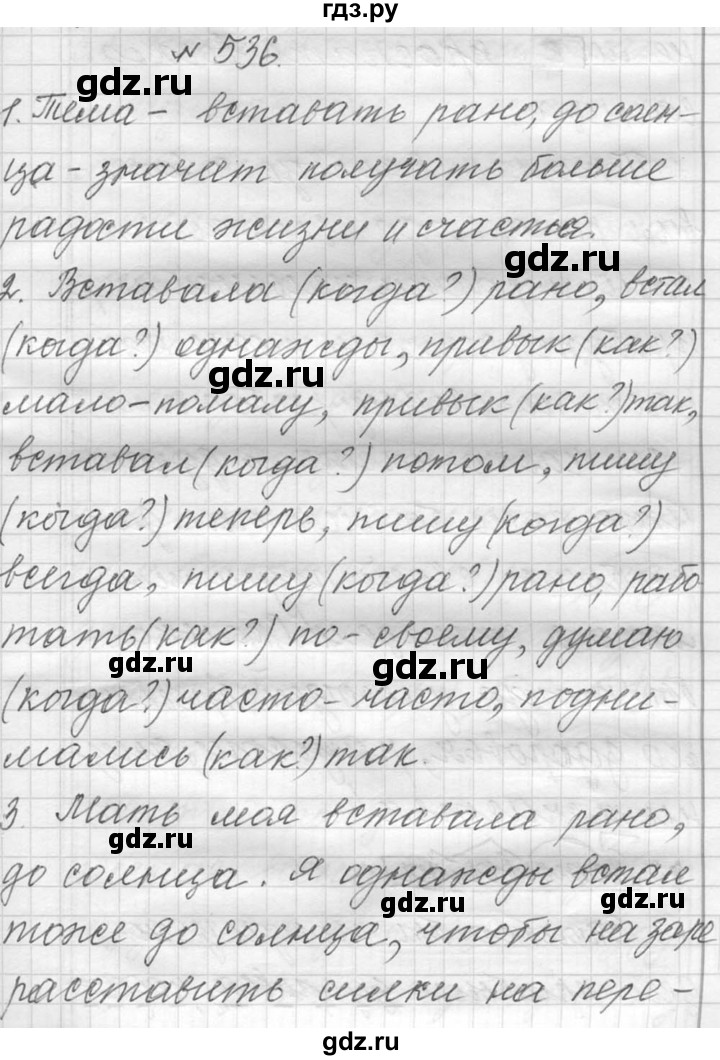 гдз.ру
№ 536.
1. Тема – вставать рано, до солн-
ца – значит получать больше
радости жизни и счастья.
2. Вставала (когда?) рано, встал
(когда?) однажды, привык (как?)
мало-помалу, привык (как?) так,
вставал (когда?) потом, пишу
(когда?) теперь, пишу (когда?)
всегда, пишу (когда?) рано, рабо
тать (как?) по-своему, думаю
(когда?) часто-часто, подни-
мались (как?) так.
3. Мать моя вставала рано,
до солнца. Я однажды встал
тоже до солнца, чтобы на заре
расставить силки на пере-
gdz.ru
gdz.ru
gdz.ru
gdz.ru
gdz.ru
gdz.ru
gdz.ru
gdz.ru
gdz.ru